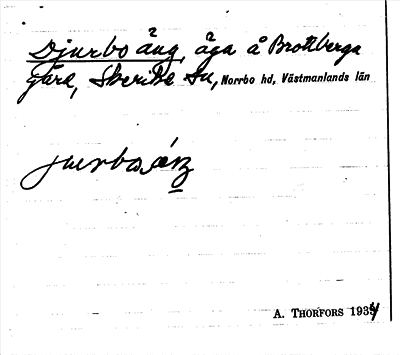 Djurbo äng, äga å Brottberga
gärd, Skerike sn, Norrbo hd, Västmanlands län
A. THORFORS 1934